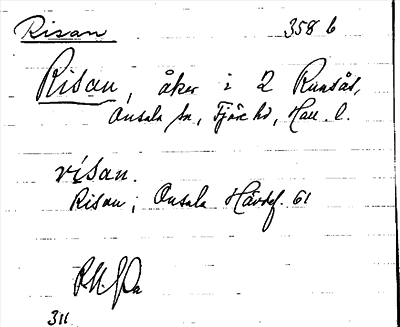 Risan 358 b
Risan, åker i 2 Runsås,
Onsala sn, Fjäre hd, Hall. l.
risan.
Risan, Onsala Håvdf. 61
311